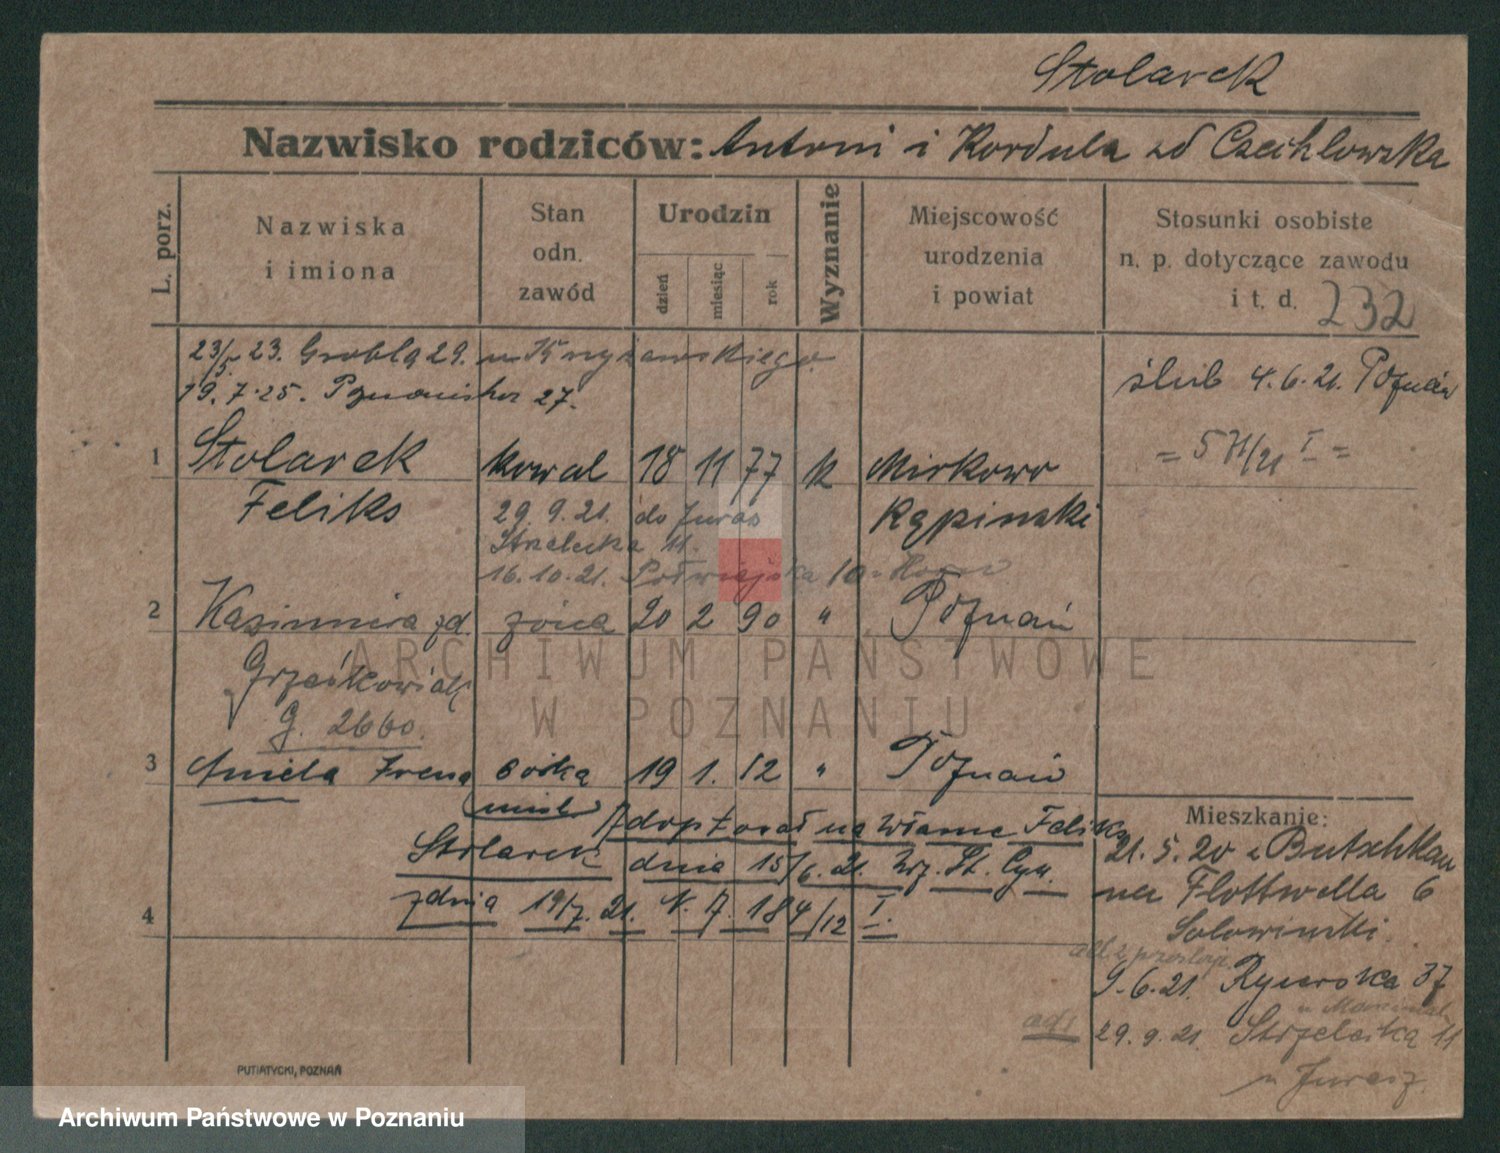 Stolarek
Nazwisko rodziców: Antoni i Kordula zd Czechlowska
L. porz.
Nazwiska i imiona
Stan odn. zawód
Urodzin
dzień
miesiąc
rok
Wyznanie
Miejscowość urodzenia i powiat
Stosunki osobiste n. p. dotyczące zawodu i t. d. 232
23/5 23. Grobla 29. u Krzyżanowskiego
19.7.25. Poznańska 27.
ślub 4.6.21. Poznań
1 Stolarek kowal 18 11 77 k Mirkowo
= 571/21 I =
Feliks 29.9.21. do Juras Kępiński
Strzelecka 11.
16.10.21. Półwiejska 10
2 Kazimiera zd. żona 20 2 90 " Poznań
Grześkowiak
G. 2660.
3 Aniela Irena córka 19 1. 12 " Poznań
Adoptował na własne Feliks
Stolarek dnia 15/6.21. Urz. St. Cyw.
4 z dnia 19/7.21. N. 7. 184/12 I.
Mieszkanie:
21.5.20 z Butschkau
na Flottwella 6
9.6.21. 37
29.9.21. Strzelecka 11
u Jurasz.
PUTIATYCKI, POZNAŃ
ARCHIWUM PAŃSTWOWE
W POZNANIU
Archiwum Państwowe w Poznaniu